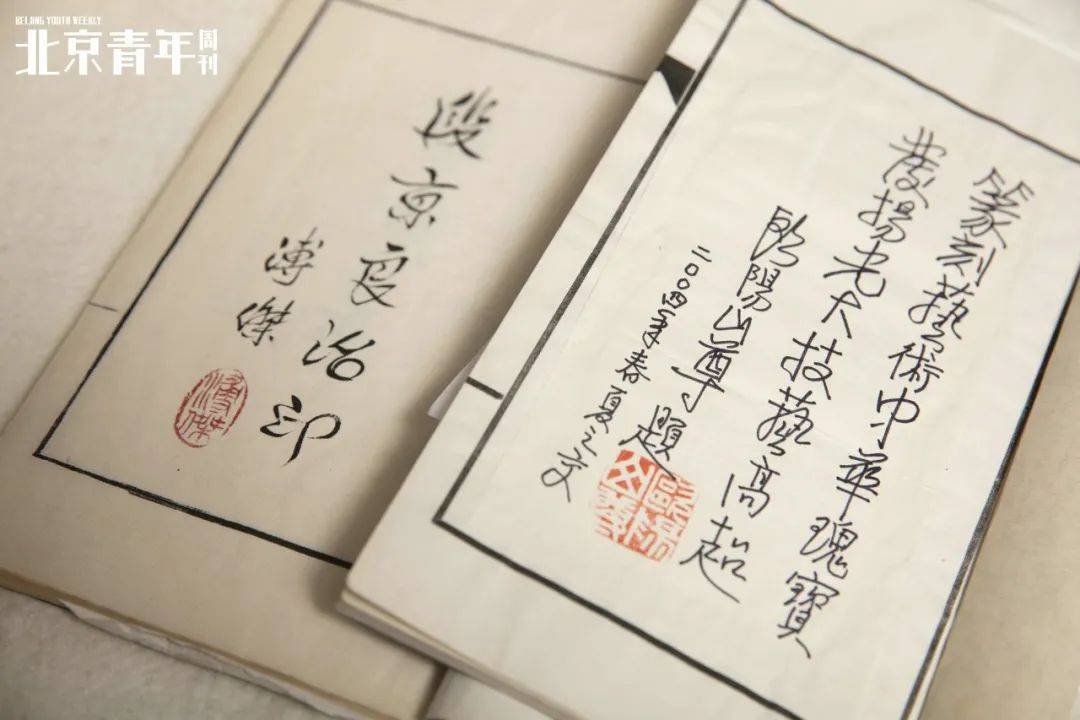 BEIJING YOUTH WEEKLY
北京青年周刊
段京良治印
溥傑
溥傑
篆刻藝術中華瑰寶
發揚光大技藝高超
欧陽山尊題
二〇〇四年春夏之交